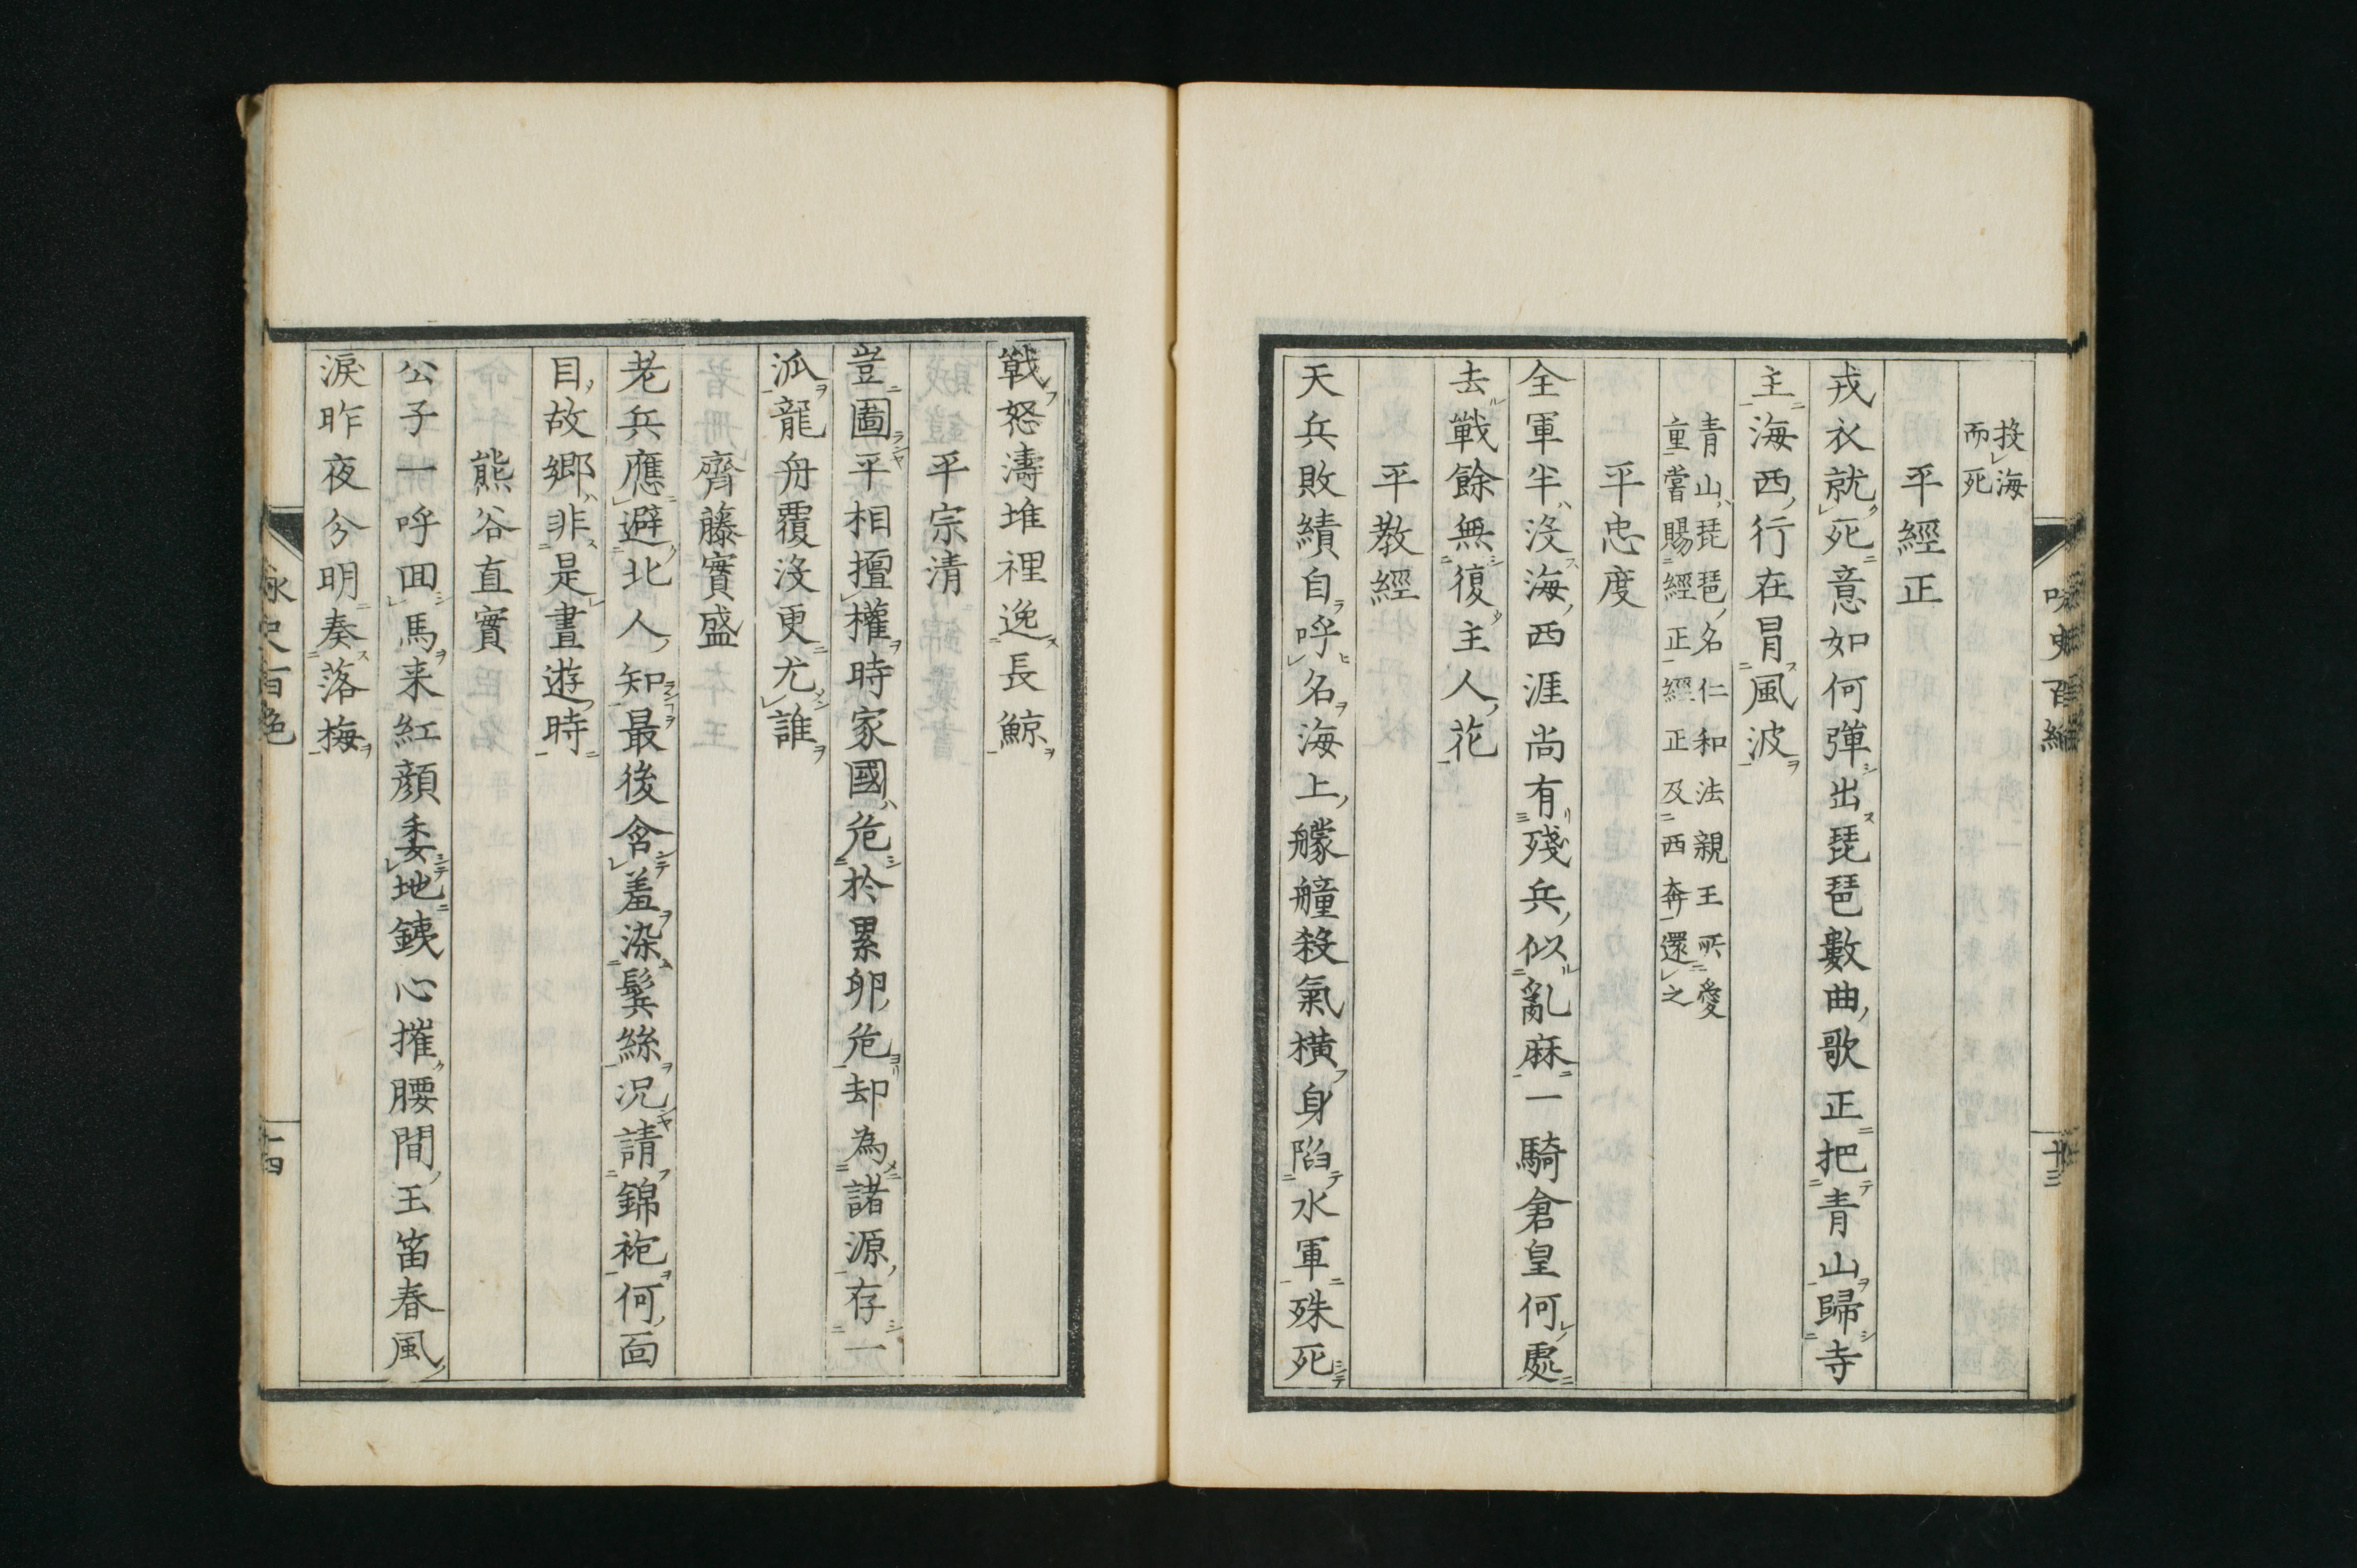 投海
而死
平經正
戎衣就死意如何彈出琵琶數曲歌正把青山歸寺
主海西行在冒風波
青山琵琶名仁和法親王所愛
童嘗賜經正經正及西奔還之
平忠度
全軍半沒海西涯尚有殘兵似亂麻一騎倉皇何處
去戰餘無復主人花
平教經
天兵敗績自呼名海上艨艟殺氣橫身陷水軍殊死
詠史百絶
十三
戰怒濤堆裡逸長鯨
平宗清
豈圖平相擅權時家國危於累卵危却為諸源存一
泒龍舟覆沒更尤誰
齊藤實盛
老兵應避北人知最後含羞染鬢絲況請錦袍何面
目故鄉非是晝遊時
熊谷直實
公子一呼回馬来紅顏委地銕心摧腰間玉笛春風
淚昨夜分明奏落梅
詠史百絶
十四